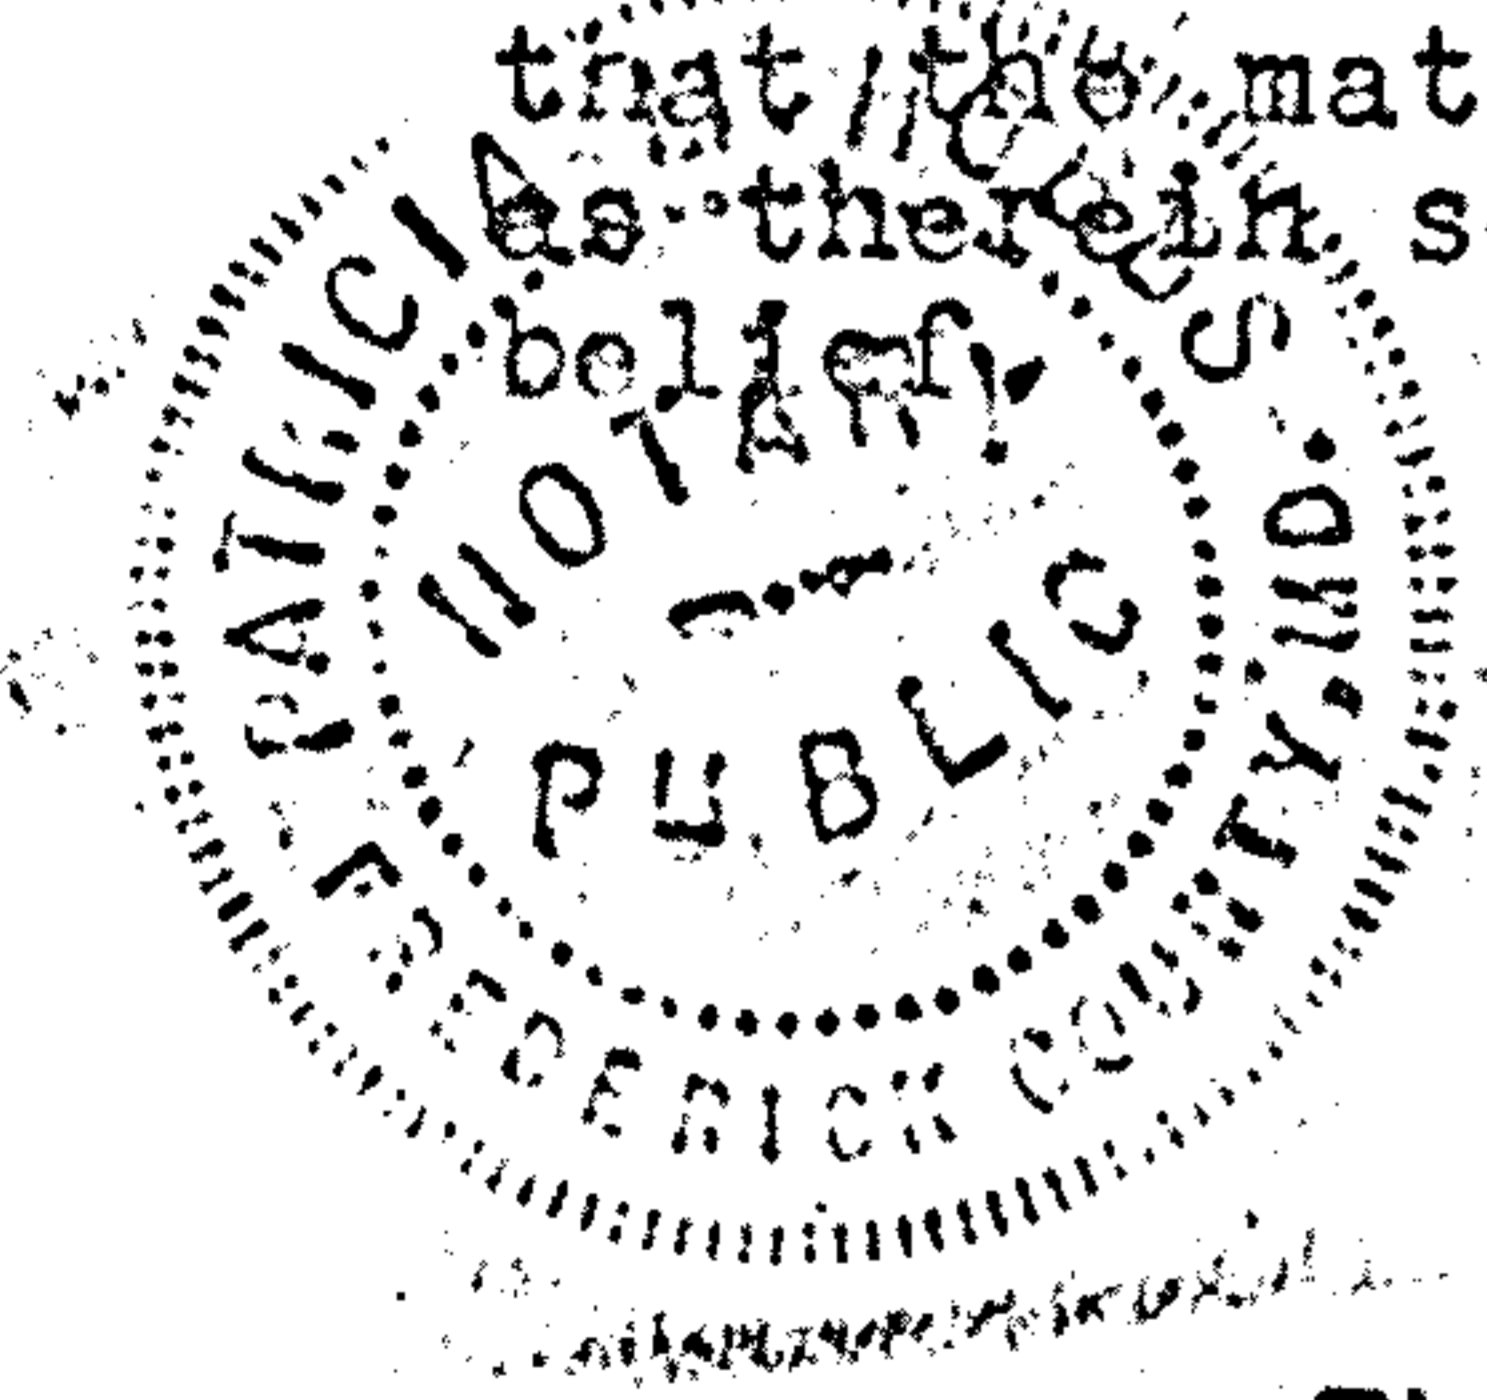 that the mat
as therein s
belief.
PATRICIA
NOTARY
PUBLIC
FREDERICK COUNTY, MD.